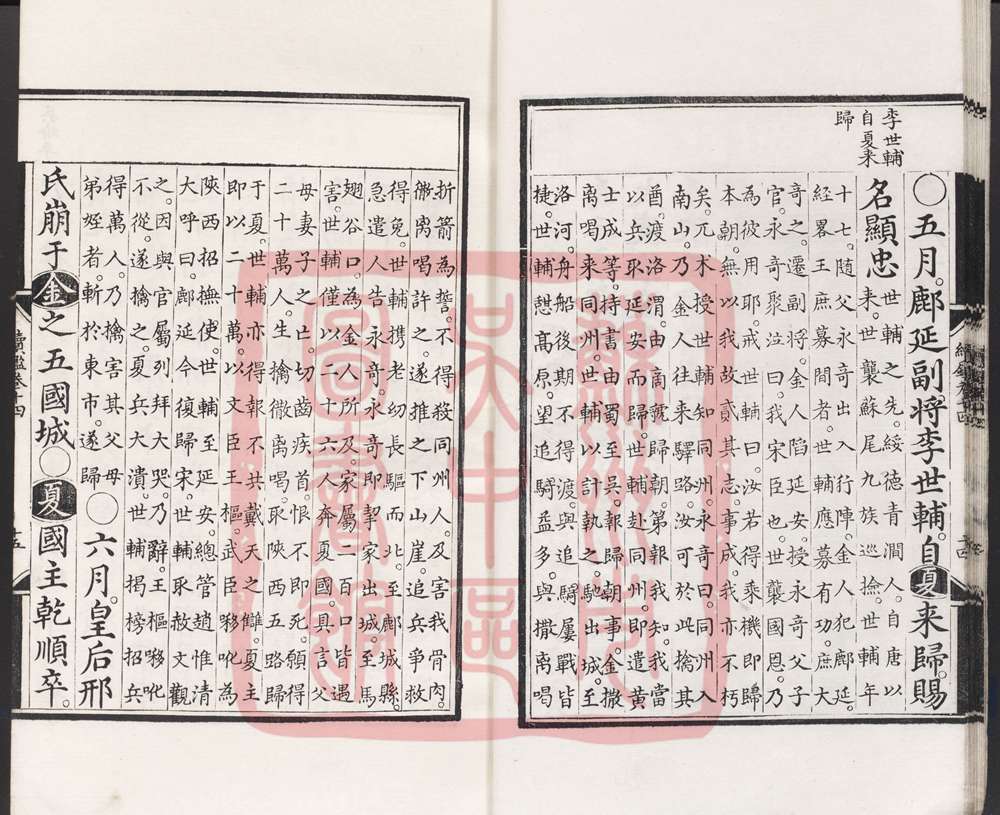 李世輔
自夏来
歸
〇五月。鄜延副将李世輔。自夏来歸。賜
名顯忠
世輔之先。綏德青澗人。自唐以
来。世襲蘇尾九族巡撿。世輔年
十七。随父永奇出入行陣。金人犯鄜延。
経畧王庶募間者。世輔應募有功。庶大
奇之。遷副將。金人陷延安。授永奇父子
官。永奇聚泣曰。我宋臣也。世襲國恩。乃
為彼用耶。戒世輔曰。汝若得乘機即歸
本朝。無以我故貳其志。事成。我亦不朽
矣。兀术授世輔知同州。永奇曰。同州入
南山。乃金人往来驛路。汝可於此擒其
酋。渡洛渭。由商虢歸朝。第報我知。我當
以兵取延安而歸。世輔赴同州。即遣黄
士成等。持書由蜀至吳。報歸朝事。金撒
离喝来同州。世輔以計執之。馳出城。至
洛河。舟船後期。不得渡。與追騎屢戰皆
捷。世輔憇高原。望追騎益多。與撒离喝
折箭為誓。不得殺同州人。及害我骨肉。
撒离喝許之。遂推之下山崖。追兵爭救
得免。世輔携老幼長驅而北。至鄜城縣。
急遣人告永奇。永奇即挈家出城。至馬
翅谷口。為金人所及。家屬二百口皆遇
害。世輔僅以二十六人奔夏國。具言父
母妻子之亡。切齒疾首。恨不即死。願得
二十萬人。生擒撒离喝。取陝西五路歸
于夏。世輔亦得報不共戴天之讎。夏主
即以二十萬。以文臣王樞。武臣移吪為
陝西招撫使。世輔至延安。總管趙惟清
大呼曰。鄜延今復歸宋。世輔取赦文觀
之。因與官屬列拜大哭。乃辭王樞移吪
不從。遂擒之。夏兵大潰。世輔揭榜招兵
得萬人。乃擒害其父母
弟姪者。斬於東市。遂歸
〇六月。皇后邢
氏崩于金之五國城〇夏國主乾順卒。
蘇州市
吳中區
圖書館